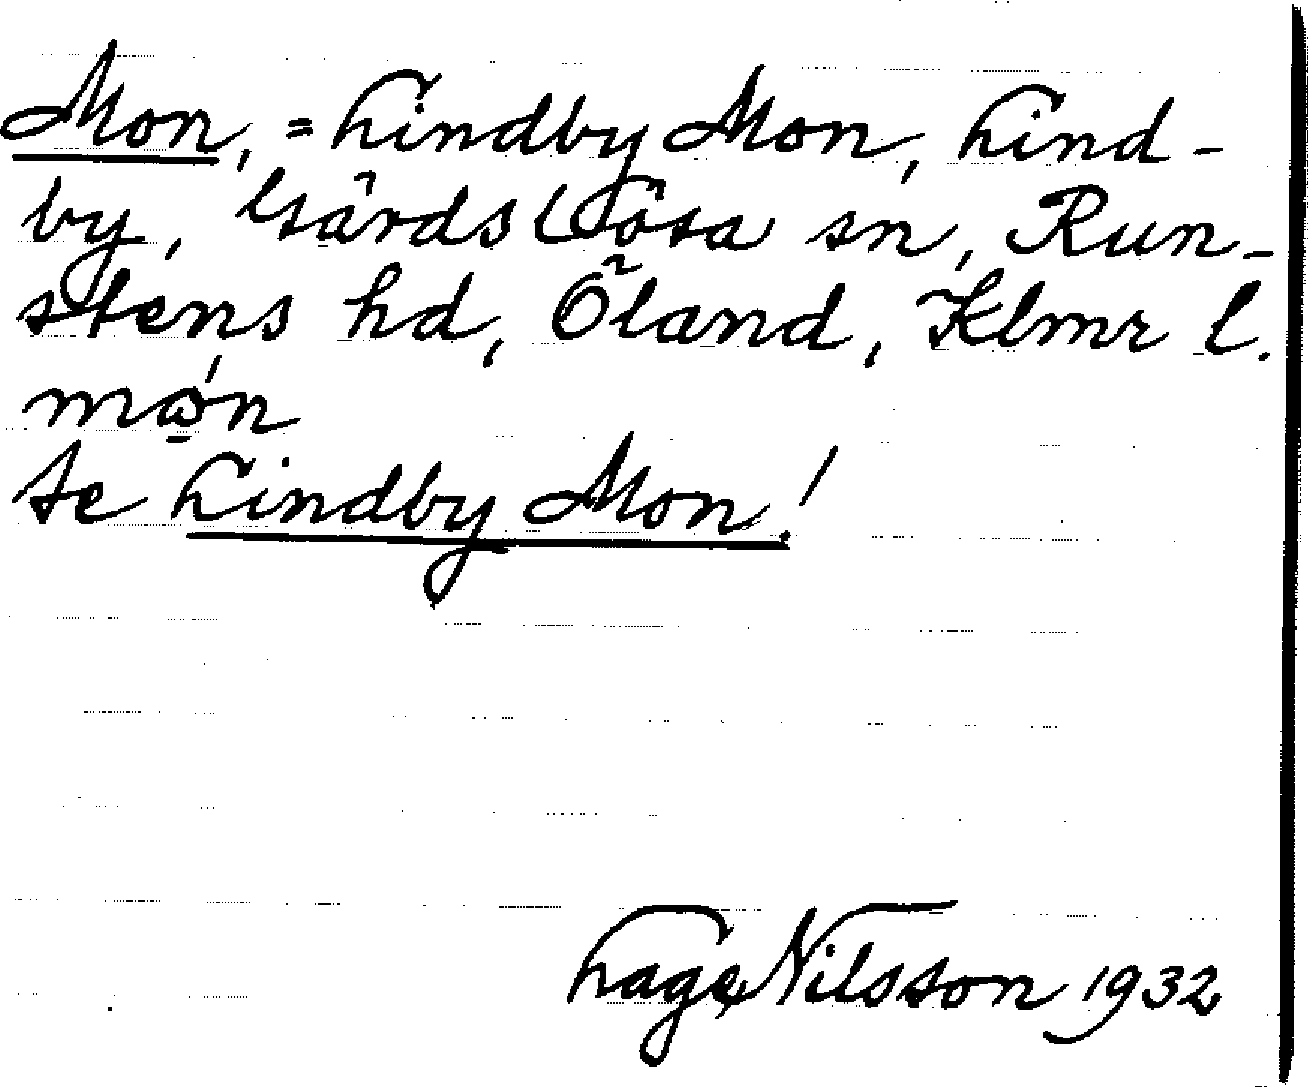 Mon, = Lindby Mon, Lind-
by, Gärdslösa sn, Run-
stens hd, Öland, Klmr l.
se Lindby Mon!
Lage Nilsson 1932